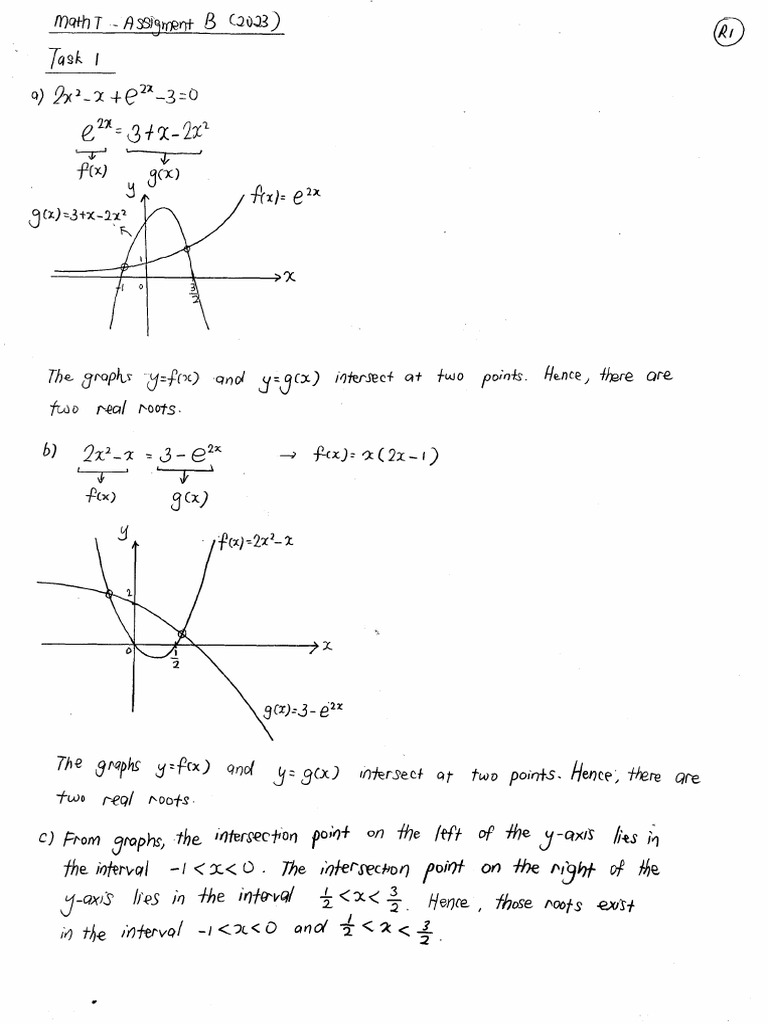 Math T - Assigment B (2023)
R1
Task 1
a) 2x² - x + e²ˣ - 3 = 0
e²ˣ = 3 + x - 2x²
f(x) g(x)
y
f(x) = e²ˣ
g(x) = 3 + x - 2x²
1
x
-1 0 3/2
The graphs y=f(x) and y=g(x) intersect at two points. Hence, there are
two real roots.
b) 2x² - x = 3 - e²ˣ → f(x) = x(2x - 1)
f(x) g(x)
y
f(x) = 2x² - x
2
x
0 1/2
g(x) = 3 - e²ˣ
The graphs y=f(x) and y=g(x) intersect at two points. Hence, there are
two real roots.
c) From graphs, the intersection point on the left of the y-axis lies in
the interval -1 < x < 0. The intersection point on the right of the
y-axis lies in the interval 1/2 < x < 3/2. Hence, those roots exist
in the interval -1 < x < 0 and 1/2 < x < 3/2.